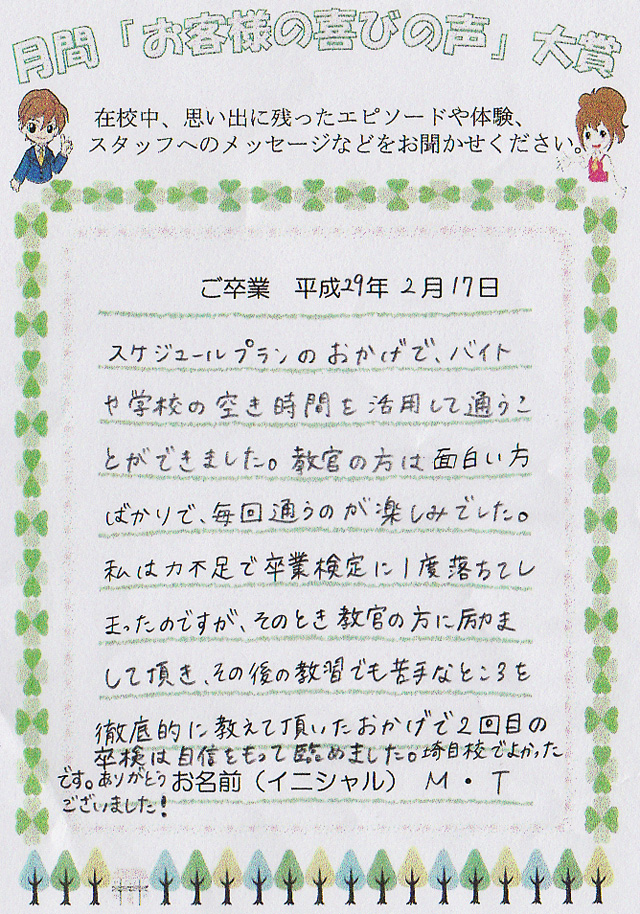 月間「お客様の喜びの声」大賞
在校中、思い出に残ったエピソードや体験、
スタッフへのメッセージなどをお聞かせください。
ご卒業 平成29年 2月17日
スケジュールプランのおかげで、バイト
や学校の空き時間を活用して通うこ
とができました。教官の方は面白い方
ばかりで、毎回通うのが楽しみでした。
私は力不足で卒業検定に1度落ちてし
まったのですが、そのとき教官の方に励ま
して頂き、その後の教習でも苦手なところを
徹底的に教えて頂いたおかげで2回目の
卒検は自信をもって臨めました。埼自校でよかった
です。ありがとう
ございました!
お名前(イニシャル) M・T